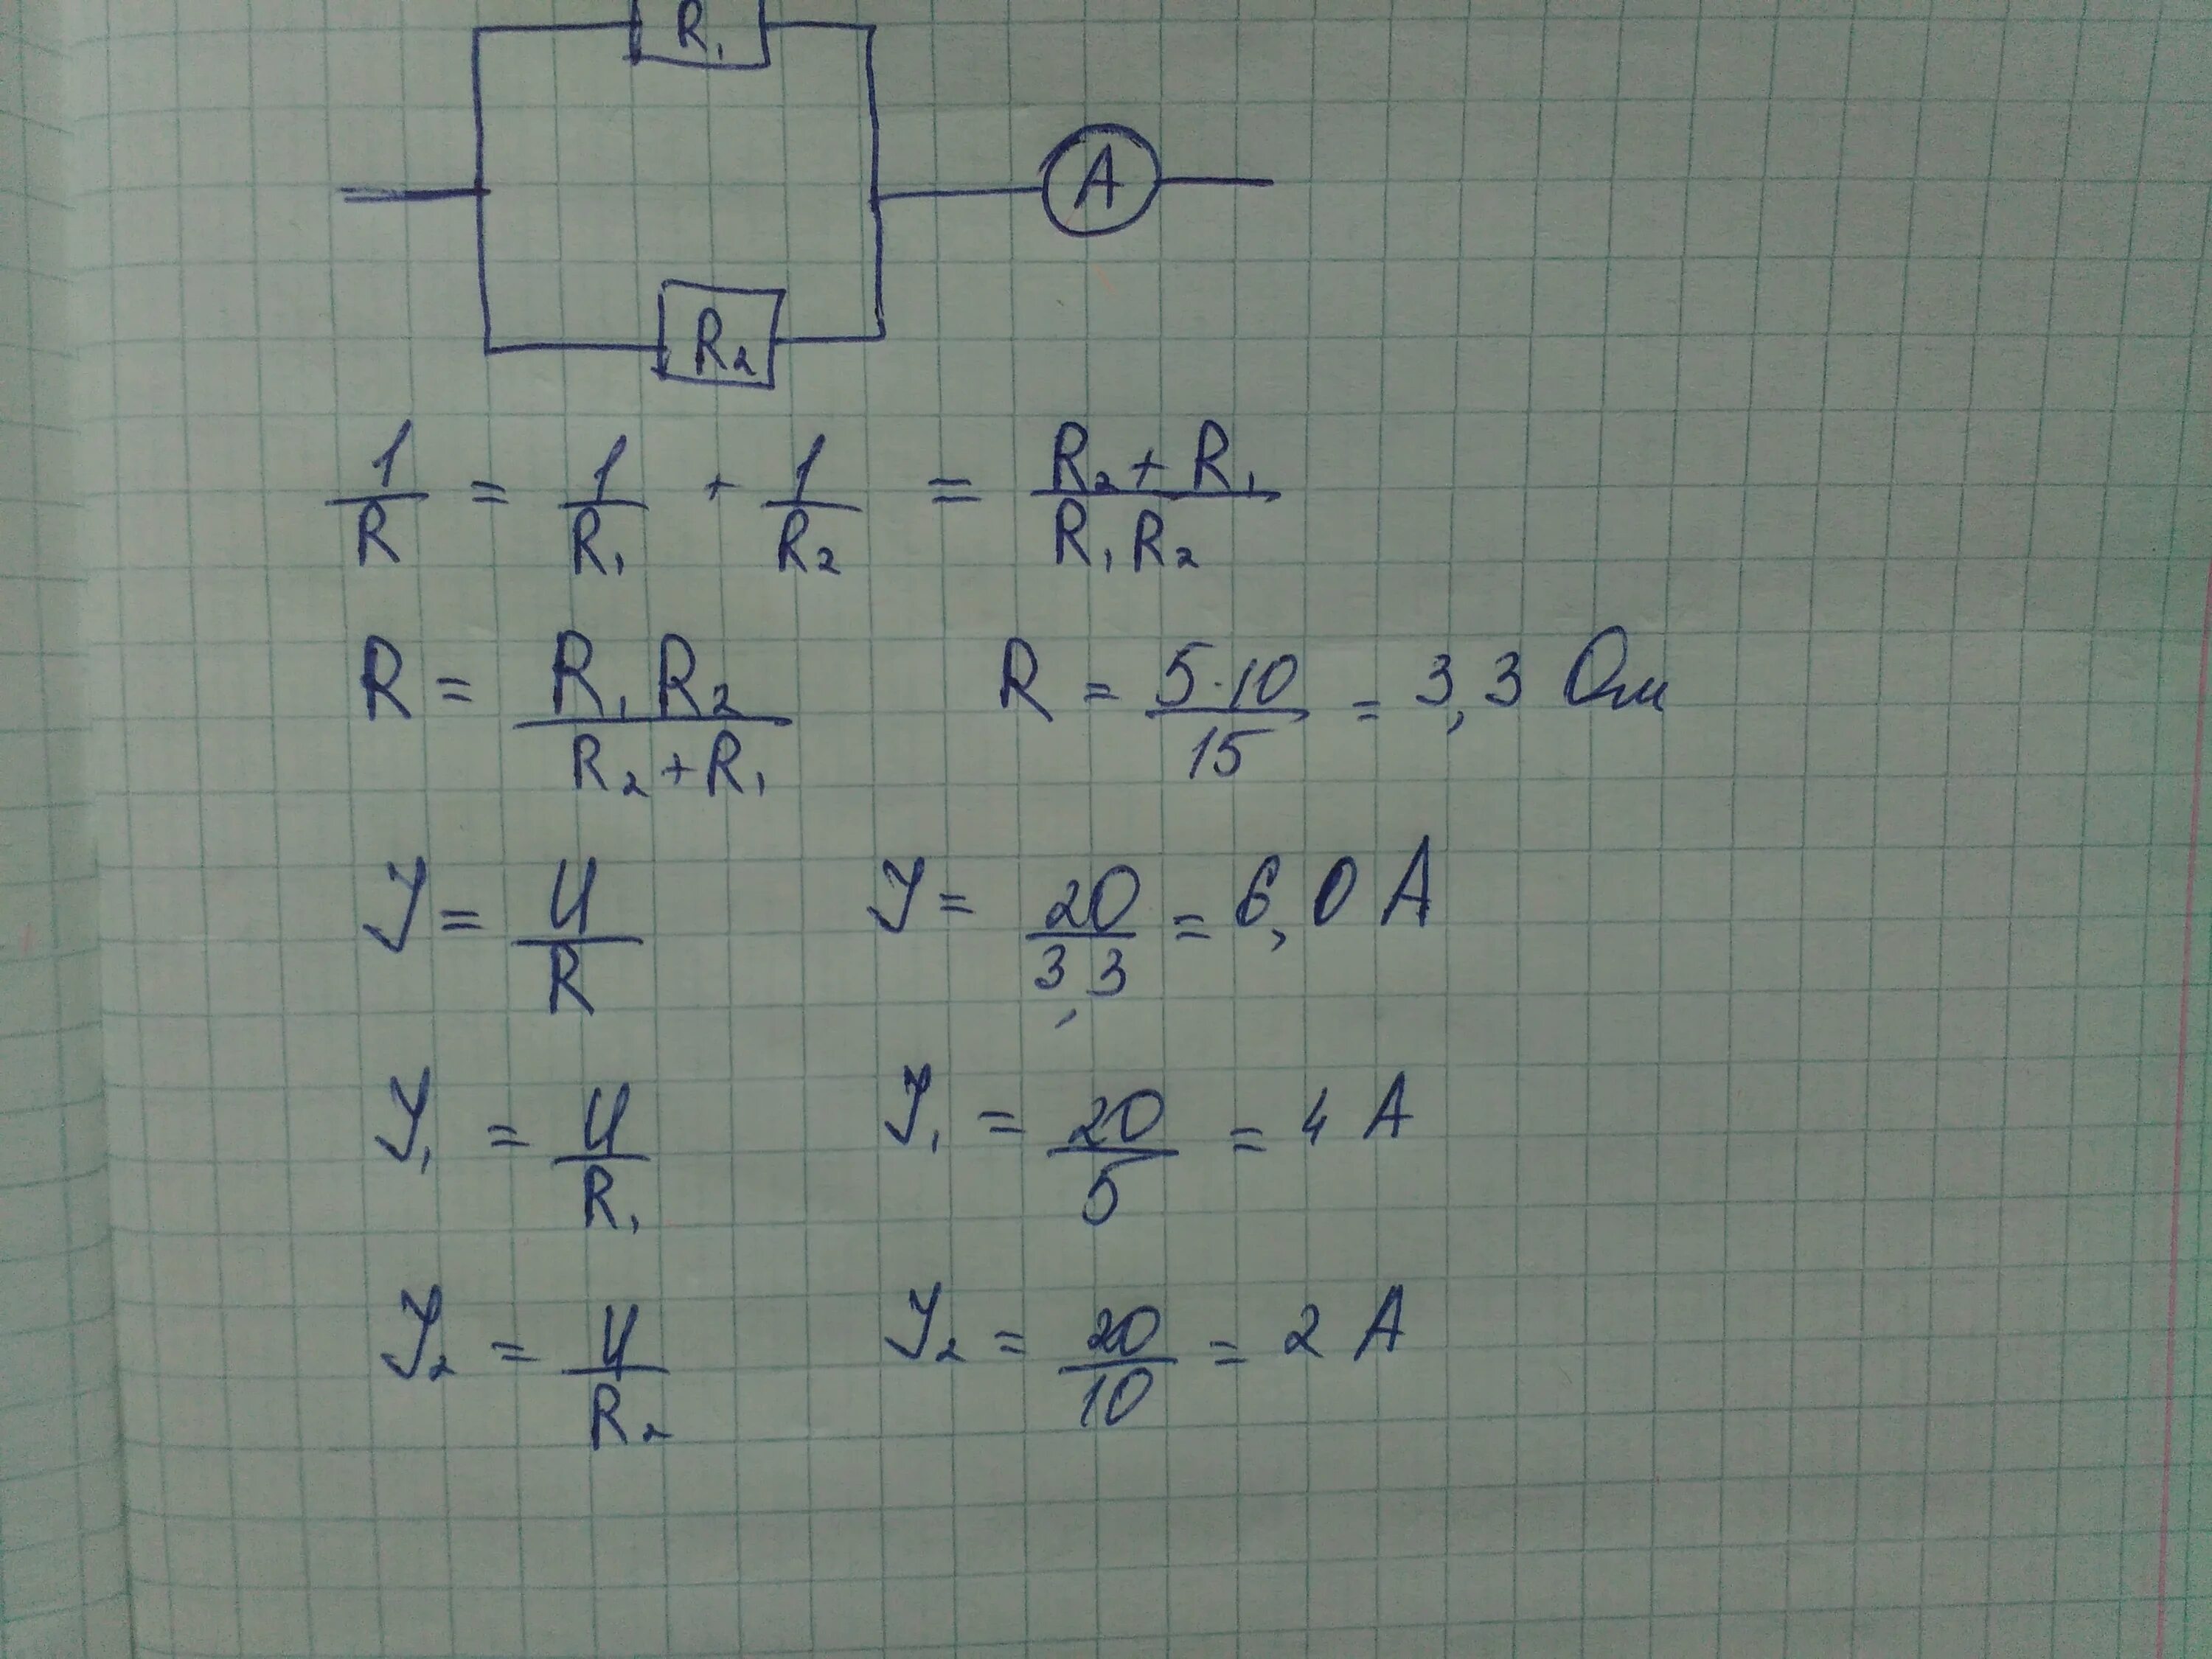 R₁
A
R₂
1/R = 1/R₁ + 1/R₂ = (R₂ + R₁)/(R₁ R₂)
R = (R₁ R₂)/(R₂ + R₁) R = (5·10)/15 = 3,3 Ом
I = U/R I = 20/3,3 = 6,0 A
I₁ = U/R₁ I₁ = 20/5 = 4 A
I₂ = U/R₂ I₂ = 20/10 = 2 A